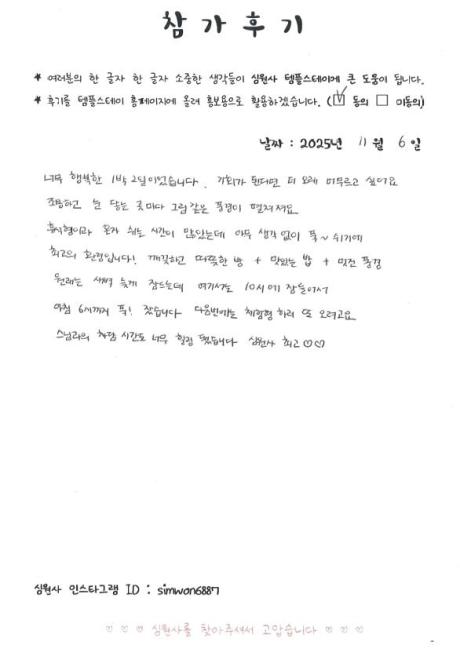 참가후기
* 여러분의 한 글자 한 글자 소중한 생각들이 심원사 템플스테이에 큰 도움이 됩니다.
* 후기를 템플스테이 홈페이지에 올려 홍보용으로 활용하겠습니다. (☑ 동의 ☐ 미동의)
날짜 : 2025년 11월 6일
너무 행복한 1박 2일이었습니다. 기회가 된다면 더 오래 머무르고 싶어요
조용하고 눈 닿는 곳마다 그림같은 풍경이 펼쳐져요
휴식형이라 혼자 쉬는 시간이 많았는데 아무 생각 없이 푹~ 쉬기에
최고의 환경입니다! 깨끗하고 따뜻한 방 + 맛있는 밥 + 멋진 풍경
원래는 새벽 늦게 잠드는데 여기서는 10시에 잠들어서
아침 6시까지 푹! 잤습니다 다음번에는 체험형 하러 또 오려고요
스님과의 차담 시간도 너무 힐링 됐습니다 심원사 최고♡♡
심원사 인스타그램 ID : simwon6887
♡ ♡ ♡ 심원사를 찾아주셔서 고맙습니다 ♡ ♡ ♡